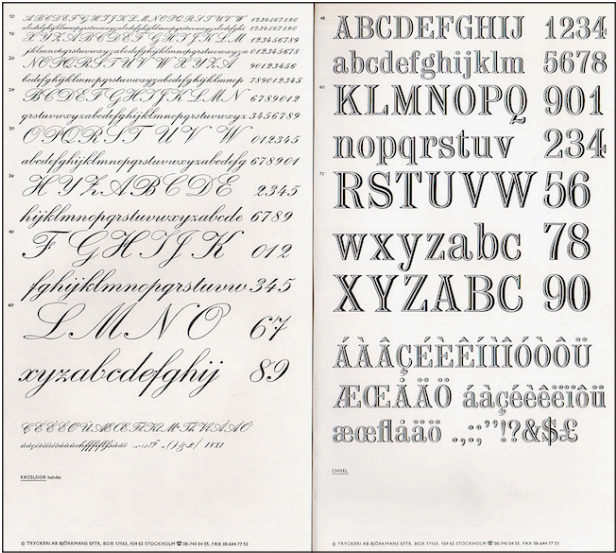 ABCDEFGHIJKLMNOPQRSTUVW XYZ 1234567890
XYZABCDEFGHIJKLM 1234567890
jklmnopqrstuvwxyzabcdefghijklmnopqrstuvwxyz 012345678
NOPQRSTUVWXYZA 90123456
bcdefghijklmnopqrstuvwxyzabcdefghijklmnop 789012345
BCDEFGHIJKLMN 6789012
qrstuvwxyzabcdefghijklmnopqrstuvwxyz 3456789
OPQRST UV W 012345
abcdefghijklmnopqrstuvwxyzabcdefg 678901
HYZABCDE 2345
hijklmnopqrstuvwxyzabcde 6789
F GHIJK 012
fghijklmnopqrstuvw 345
LMNO 67
xyzabcdefghij 89
EXCELSIOR halvfet
© TRYCKERI AB BJÖRKMANS EFTR, BOX 17163, 104 62 STOCKHOLM ☎ 08-743 04 55, FAX 08-644 77 53
48
ABCDEFGHIJ 1234
abcdefghijklm 5678
60
KLMNOPQ 901
nopqrstuv 234
72
RSTUVW 56
wxyzabc 78
XYZABC 90
ÁÀÂÇÉÈÊÍÌÎÓÒÔÜ
ÆŒÅÄÖ áàçéèêëïôü
æœflåäö .,:;’’!?&$£
CHISEL
© TRYCKERI AB BJÖRKMANS EFTR, BOX 17163, 104 62 STOCKHOLM ☎ 08-743 04 55, FAX 08-644 77 53